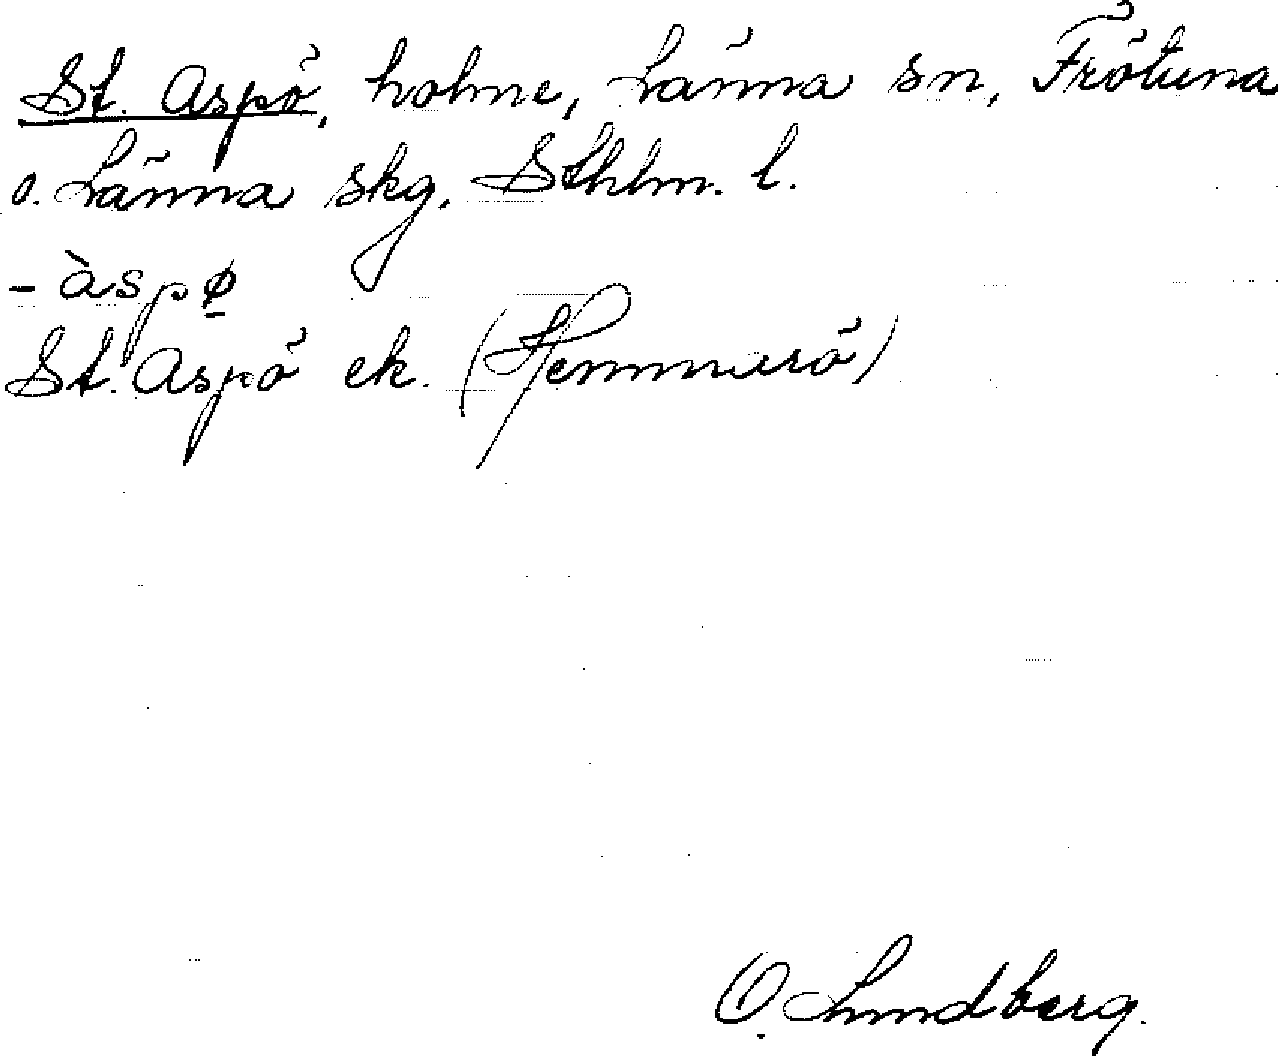 St. Aspö, holme, Länna sn, Frötuna
o. Länna skg. Sthlm. l.
- àspø̱
St. Aspö ek. (Hemmarö)
O. Lundberg.